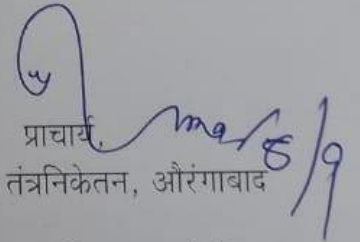 प्राचार्य,
तंत्रनिकेतन, औरंगाबाद